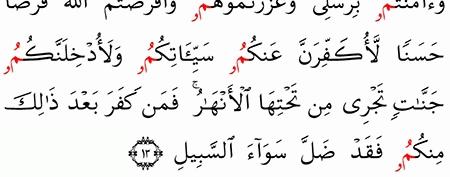 وَءَامَنتُمُۥ بِرُسُلِى وَعَزَّرْتُمُوهُمُۥ وَأَقْرَضْتُمُ ٱللَّهَ قَرْضًا
حَسَنًا لَّأُكَفِّرَنَّ عَنكُمُۥ سَيِّـَٔاتِكُمُۥ وَلَأُدْخِلَنَّكُمُۥ
جَنَّـٰتٍ تَجْرِى مِن تَحْتِهَا ٱلْأَنْهَـٰرُ ۚ فَمَن كَفَرَ بَعْدَ ذَٰلِكَ
مِنكُمُۥ فَقَدْ ضَلَّ سَوَآءَ ٱلسَّبِيلِ ﴿١٣﴾